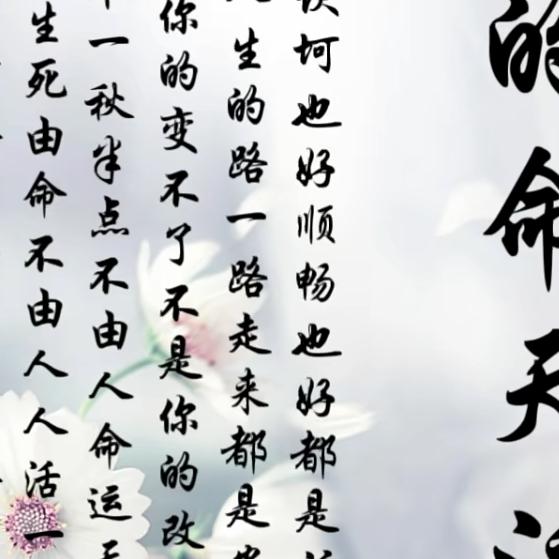 的命天
坷也好顺畅也好都是
生的路一路走来都是
你的变不了不是你的改
一秋半点不由人命运
生死由命不由人人活一